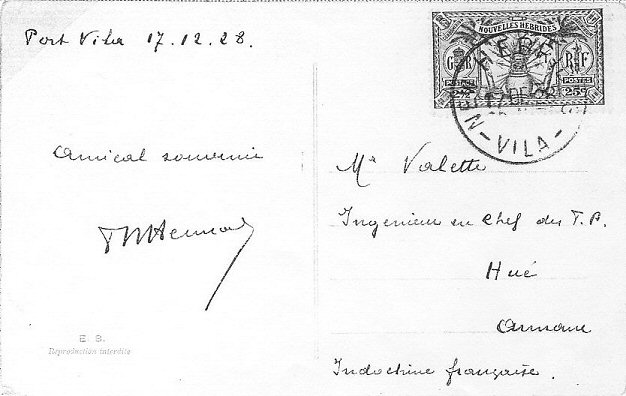 Port Vila 17.12.28.
Amical souvenir
E. B.
Reproduction interdite
NOUVELLES HÉBRIDES
GR RF
POSTES POSTES
2½ᵈ 25ᶜ
NEW HEBRIDES
17 DE 28
VILA
Mʳ Valette
Ingénieur en Chef des T.P.
Hué
Annam
Indochine française.